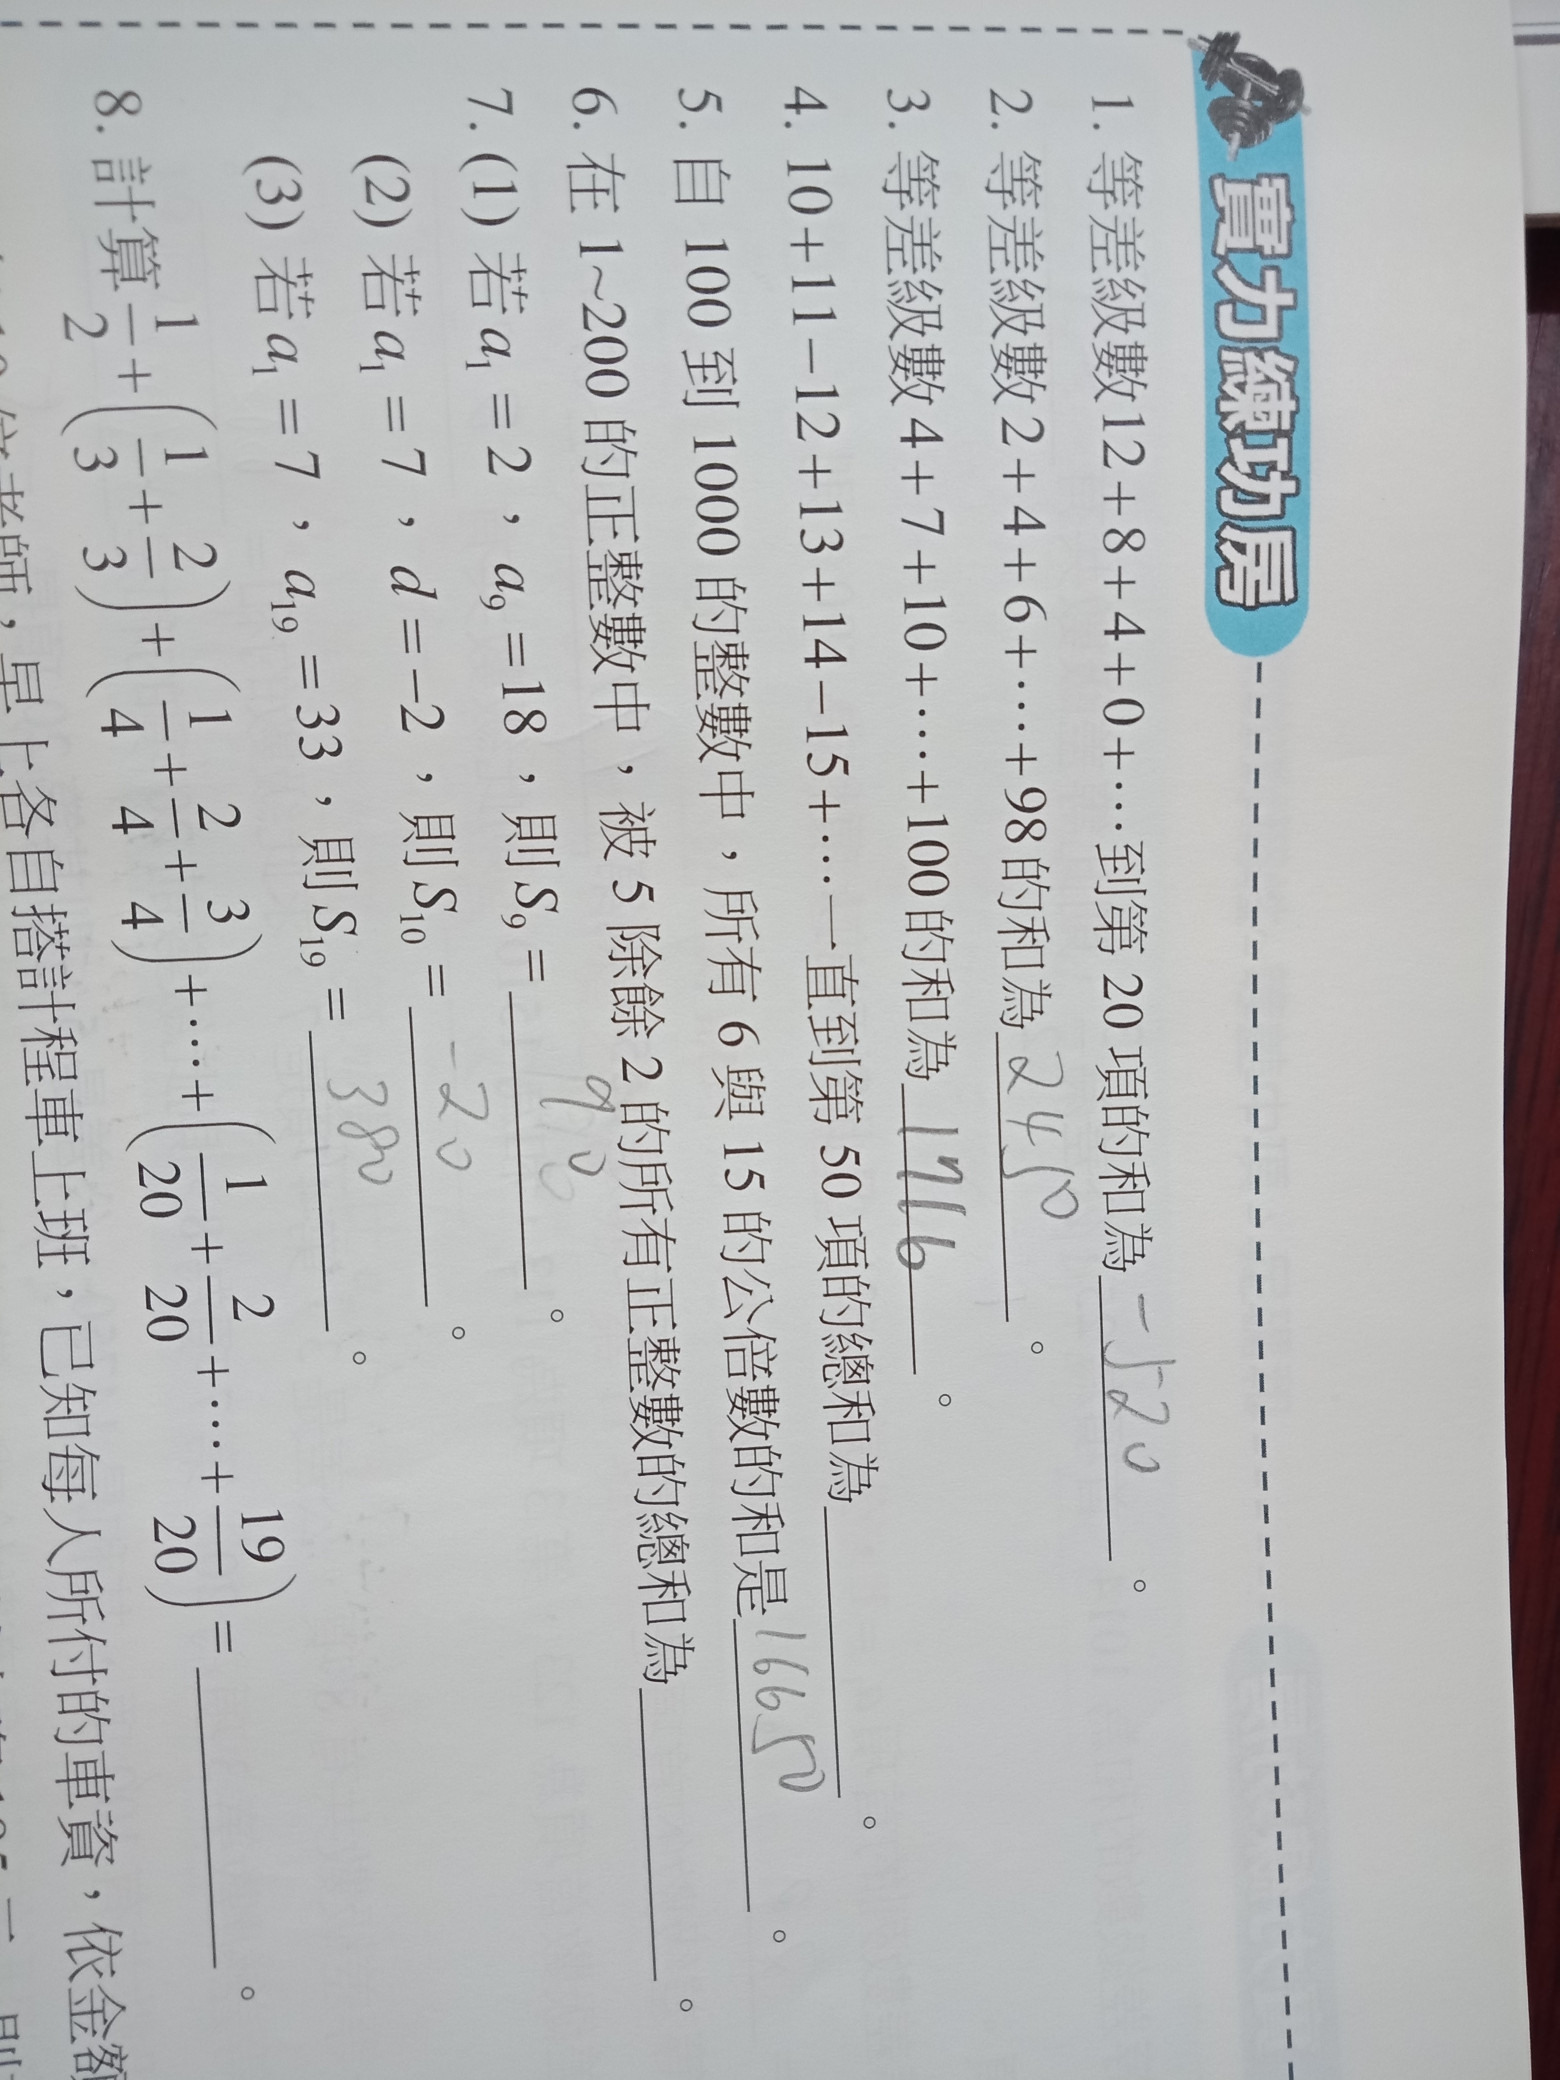 實力練功房
1. 等差級數12+8+4+0+…到第 20 項的和為 -520 。
2. 等差級數2+4+6+…+98的和為 2450 。
3. 等差級數4+7+10+…+100的和為 1716 。
4. 10+11-12+13+14-15+…一直到第 50 項的總和為 。
5. 自 100 到 1000 的整數中,所有 6 與 15 的公倍數的和是 16650 。
6. 在 1~200 的正整數中,被 5 除餘 2 的所有正整數的總和為 。
7. (1) 若 a₁ = 2,a₉ = 18,則 S₉ = 90 。
(2) 若 a₁ = 7,d = -2,則 S₁₀ = -20 。
(3) 若 a₁ = 7,a₁₉ = 33,則 S₁₉ = 380 。
8. 計算 1/2 + (1/3 + 2/3) + (1/4 + 2/4 + 3/4) + … + (1/20 + 2/20 + … + 19/20) = 。
老師,早上各自搭計程車上班,已知每人所付的車資,依金額